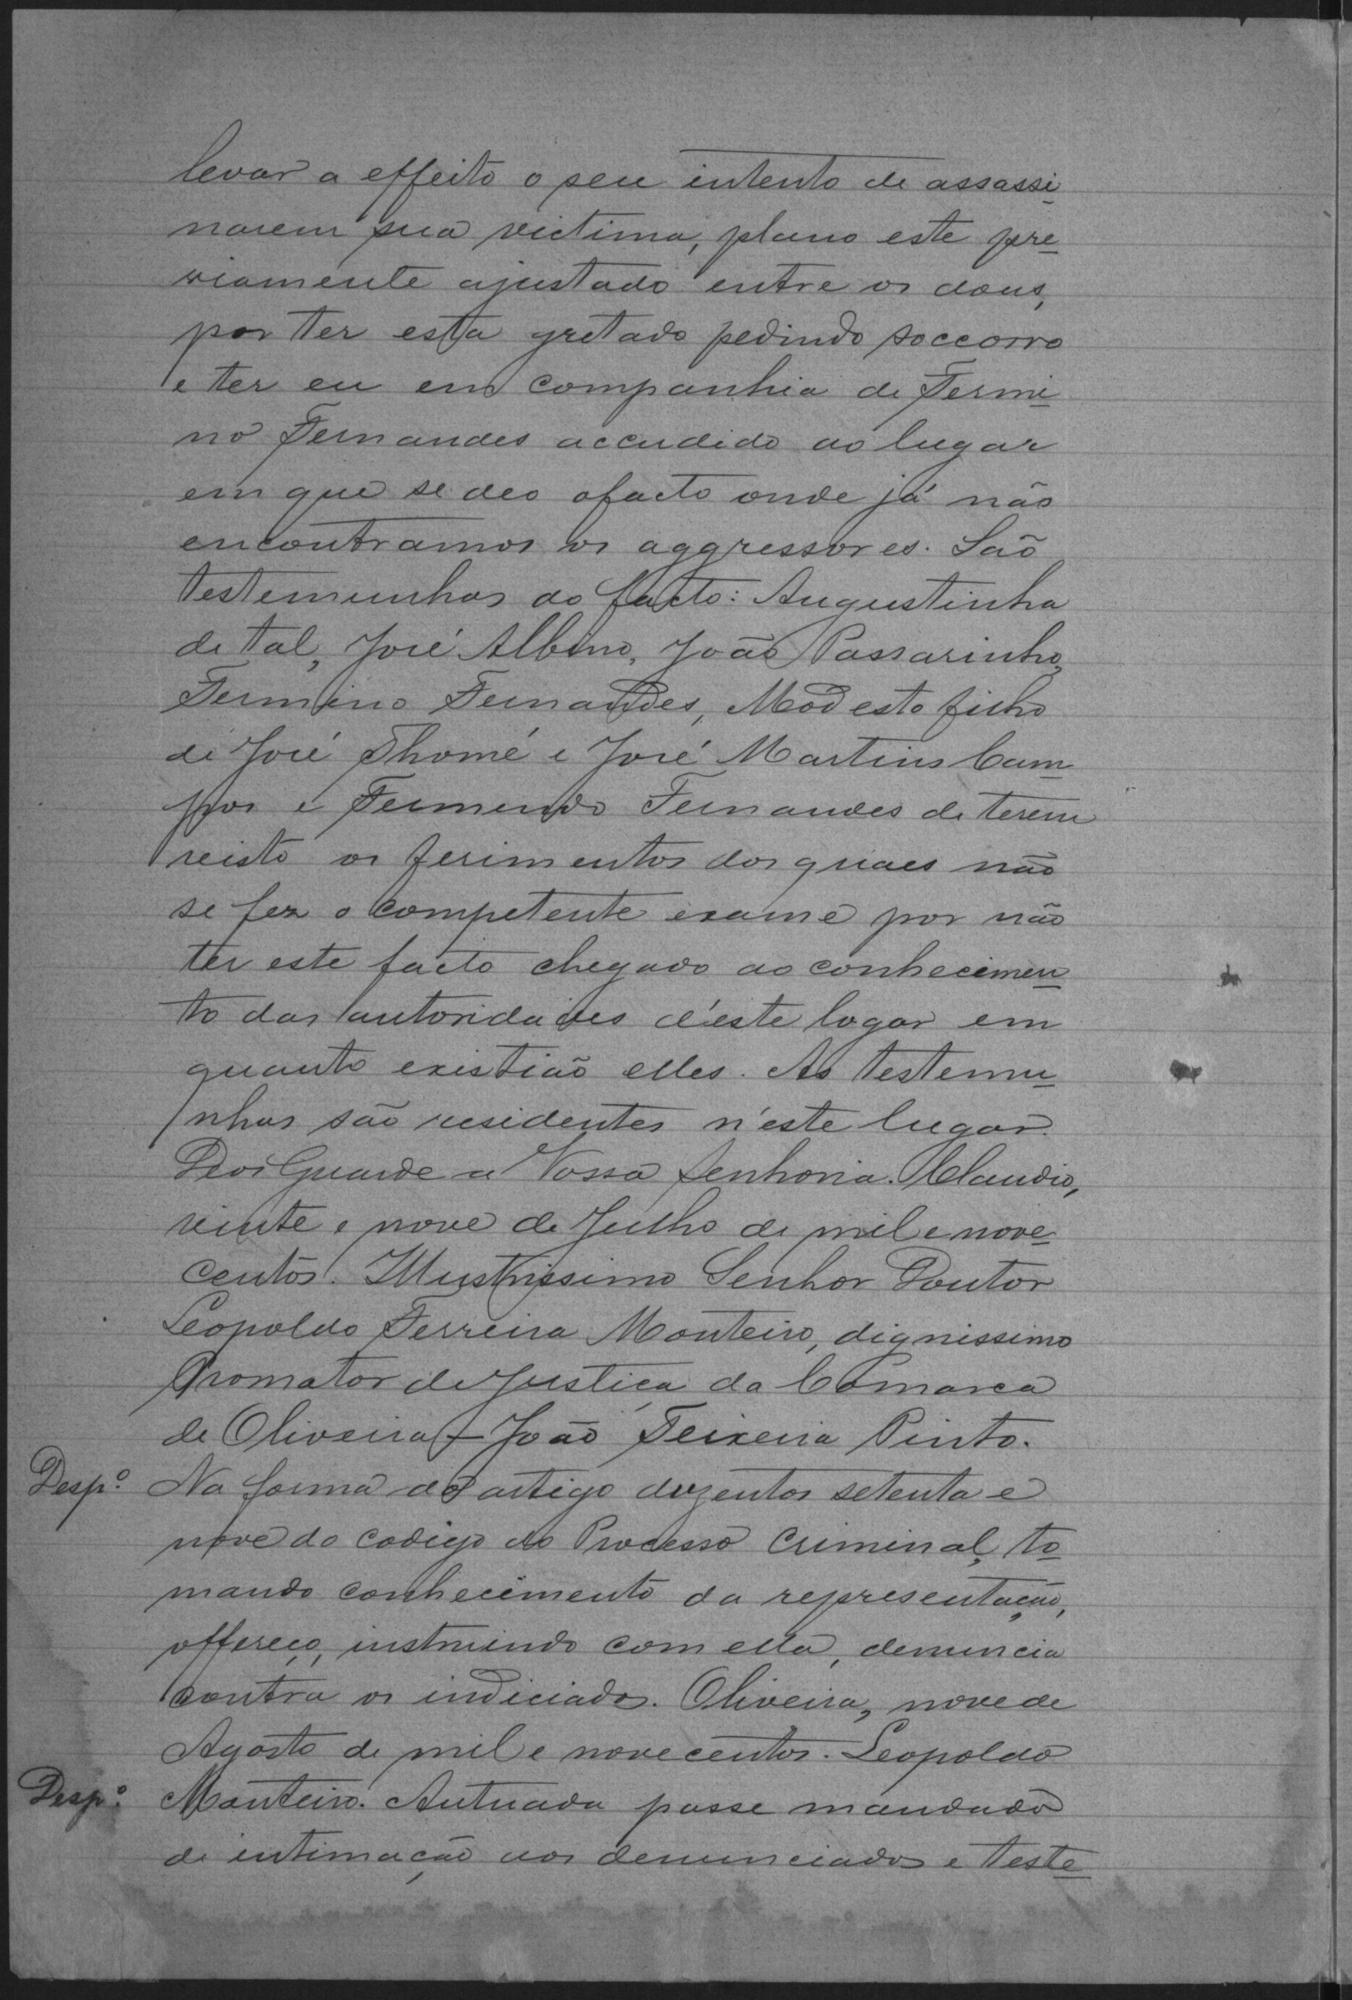 levar a effeito o seu intento de assassi-
narem sua victima, plano este pre-
viamente ajustado entre os dous,
por ter esta gretado pedindo soccorro
e ter eu em companhia de Fermi-
no Fernandes accudido ao lugar
em que se deo o facto onde já não
encontramos os aggressores. São
testemunhas do facto: Augustinha
de tal, José Albino, João Passarinho,
Fermino Fernandes, Modesto filho
de José Thomé e José Martins Cam-
pos e Fermendo Fernandes de terem
visto os ferimentos dos quaes não
se fez o competente exame por não
ter este facto chegado ao conhecimen-
to das autoridades d'este logar em
quanto existião elles. As testemu-
nhas são residentes n'este lugar.
Deos Guarde a Vossa Senhoria. Claudio,
vinte e nove de Julho de mil e nove-
centos. Illustrissimo Senhor Doutor
Leopoldo Ferreira Monteiro, dignissimo
Promator de Justiça da Comarca
de Oliveira - João Teixeira Pinto.
Desp.º Na forma do artigo duzentos setenta e
nove do codigo do Processo Criminal, to-
mando conhecimento da representação,
offereço, instruindo com ella, denuncia
contra os indiciados. Oliveira, nove de
Agosto de mil e novecentos. Leopoldo
Desp.º Monteiro. Autuada passe mandado
de intimação aos denunciados e teste-